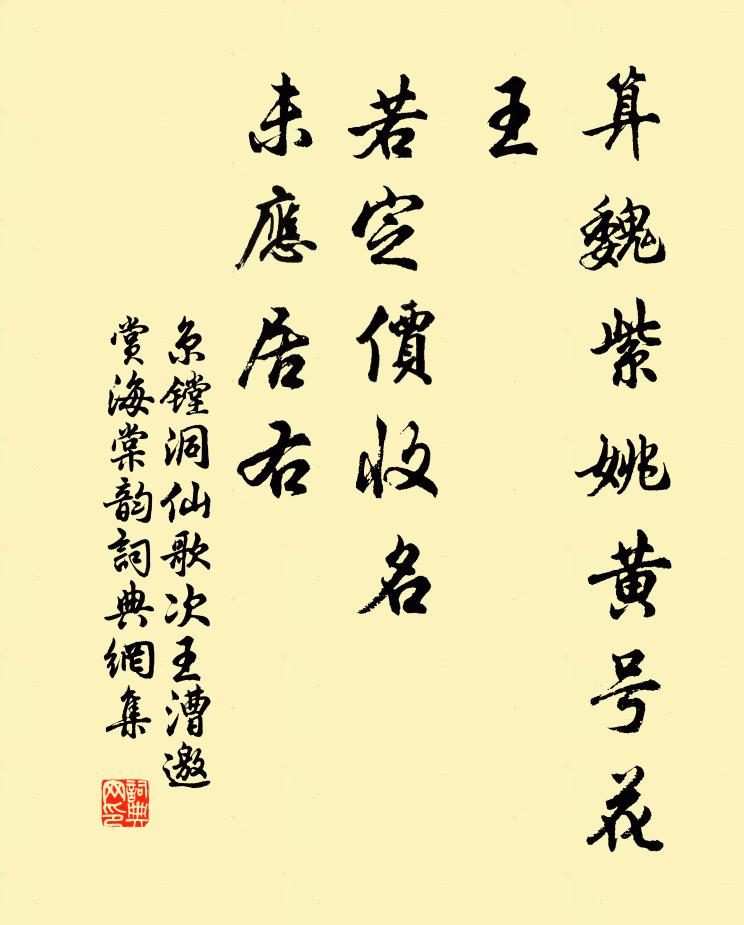 算魏紫姚黄号花
王
若定價收名
未應居右
京镗洞仙歌次王漕邀
赏海棠韵詞典網集
詞典网印